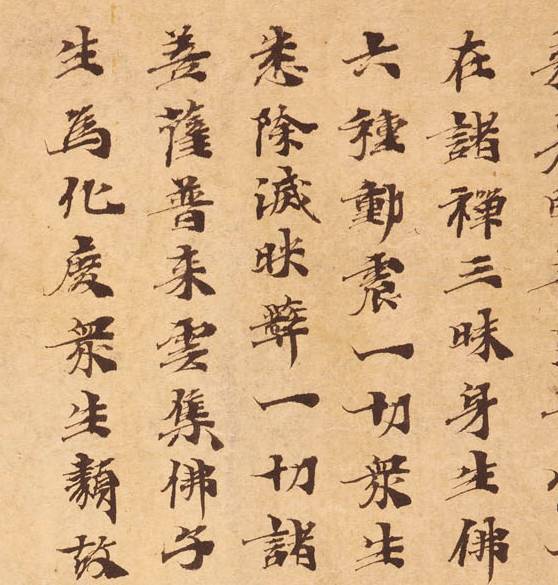 在諸禪三昧身生佛
六種動震一切眾生
悉除滅昧弊一切諸
菩薩普来雲集佛子
生為化度眾生類故